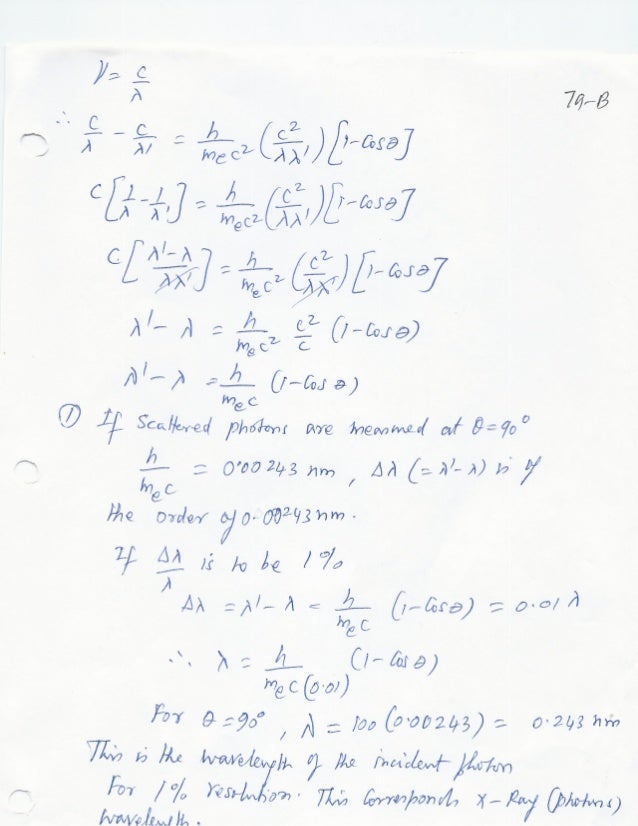 ν = c/λ
79-B
∴ c/λ - c/λ' = h/mec² (c²/λλ') [1-Cosθ]
C[1/λ - 1/λ'] = h/mec² (c²/λλ') [1-Cosθ]
C[λ'-λ/λλ'] = h/mec² (c²/λλ') [1-Cosθ]
λ' - λ = h/mec² c²/c (1-Cosθ)
λ' - λ = h/mec (1-Cosθ)
① If Scattered photons are measured at θ=90°
h/mec = 0.00243 nm, Δλ (=λ'-λ) is of
the order of 0.00243 nm.
If Δλ/λ is to be 1%
Δλ = λ'-λ = h/mec (1-Cosθ) = 0.01 λ
∴ λ = h/mec(0.01) (1-Cosθ)
For θ=90°, λ = 100 (0.00243) = 0.243 nm
This is the wavelength of the incident photon
For 1% resolution. This Corresponds X-Ray (photons)
wavelength.